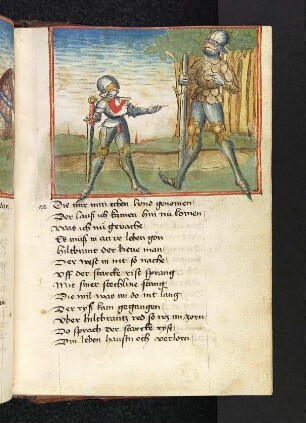 Die mir min echen hond genomen
Der lauß ich kainen hin nu komen
Was ich nü gewache
Er muß im an ir leben gon
hiltbrant der kiene man
Der west in nit so nache
Uff der starcke rise sprang
Mit siner stechline stang
Die wil was im do nit lang
Der ryß kam gegangen
Uber hiltbrantz red so waz im zorn
Do sprach der starcke ryse
Din leben haustu och verlorn